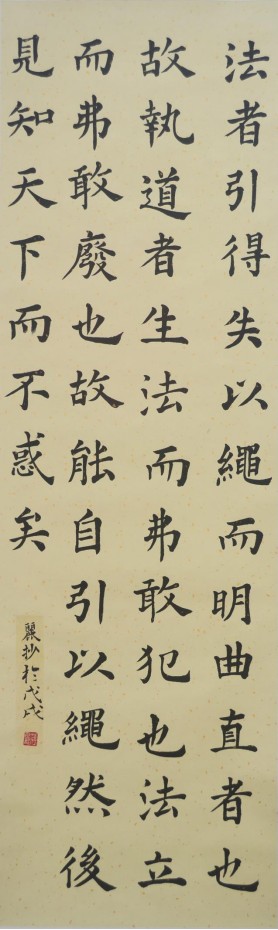 法者引得失以繩而明曲直者也
故執道者生法而弗敢犯也法立
而弗敢廢也故能自引以繩然後
見知天下而不惑矣
麗抄於戊戌